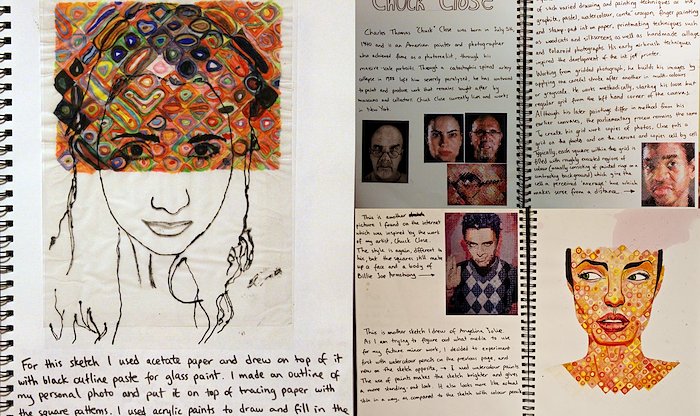 For this sketch I used acetate paper and drew on top of it
with black outline paste for glass paint. I made an outline of
my personal photo and put it on top of tracing paper with
the square patterns. I used acrylic paints to draw and fill in the
Chuck Close
Charles Thomas "Chuck" Close was born in July 5th,
1940 and is an American painter and photographer
who achieved fame as a photorealist, through his
massive-scale portraits. Though a catastrophic spinal artery
collapse in 1988 left him severely paralysed, he has continued
to paint and produce work that remains sought after by
museums and collectors. Chuck Close currently lives and works
in New York.
of such varied drawing and painting techniques as ink,
graphite, pastel, watercolour, conté crayon, finger painting
and stamp-pad ink on paper, printmaking techniques such
as woodcuts and silkscreens as well as handmade collage
and Polaroid photographs. His early airbrush techniques
inspired the development of the ink jet printer.
Working from gridded photograph, he builds his images by
applying one careful stroke after another in multi-colours
or grayscale. He works methodically, starting his loose but
regular grid from the left hand corner of the canvas.
Although his later painting differ in method from his
earlier canvases, the preliminary process remains the same.
To create his grid work copies of photos, Close puts a
grid on the photo and on the canvas and copies cell by cell.
Typically, each square within the grid is
filled with roughly executed regions of
colour (usually consisting of painted rings on a
contrasting background) which give the
cell a perceived 'average' hue which
makes sense from a distance.
This is another
picture I found on the internet
which was inspired by the work
of my artist, Chuck Close.
The style is again, different to
his, but the squares still make
up a face and a body of
Billie Joe Armstrong
This is another sketch I drew of Angelina Jolie.
As I am trying to figure out what media to use
for my future minor work, I decided to experiment
first with watercolour pencils on the previous page, and
now on the sketch opposite, I used watercolour paints.
The use of paints makes the sketch brighter and gives
a more standing-out look. It also looks more like actual
skin in a way, as compared to the sketch with colour pencils